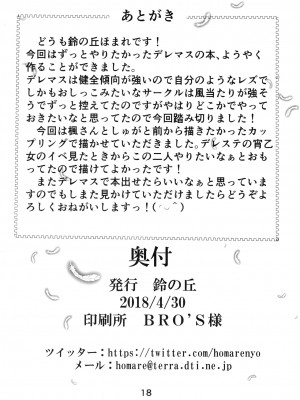 あとがき
どうも鈴の丘ほまれです！
今回はずっとやりたかったデレマスの本、ようやく
作ることができました。
デレマスは健全傾向が強いので自分のようなレズで
しかもおしっこみたいなサークルは風当たりが強そ
うでずっと控えてたのですがやはりどこかでやって
おきたいなと思ってたので今回踏み切りました！
今回は楓さんとしゅがを前から描きたかったカッ
プリングで描かせていただきました。デレステの宵乙
女のイベ見たときからこの二人やりたいなぁとおも
ってたので描けてよかったです！
またデレマスで本出せたらいいなぁと思っていま
すのでもしまた見かけていただけましたらどうぞよ
ろしくおねがいしますっ！(´︶`)
奥付
発行　鈴の丘
2018/4/30
印刷所　ＢＲＯ'Ｓ様
ツイッター：https://twitter.com/homarenyo
メール：homare@terra.dti.ne.jp
18